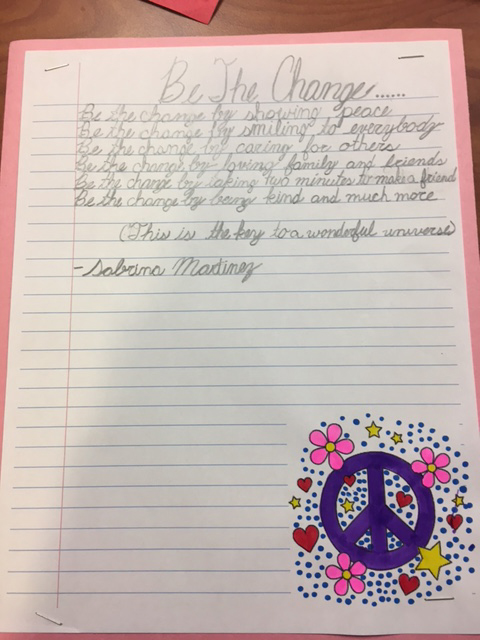 Be The Change......
Be the change by showing peace
Be the change by smiling to everybody
Be the change by caring for others
Be the change by loving family and friends
Be the change by taking two minutes to make a friend
Be the change by being kind and much more
(This is the key to a wonderful universe)
-Sabrina Martinez